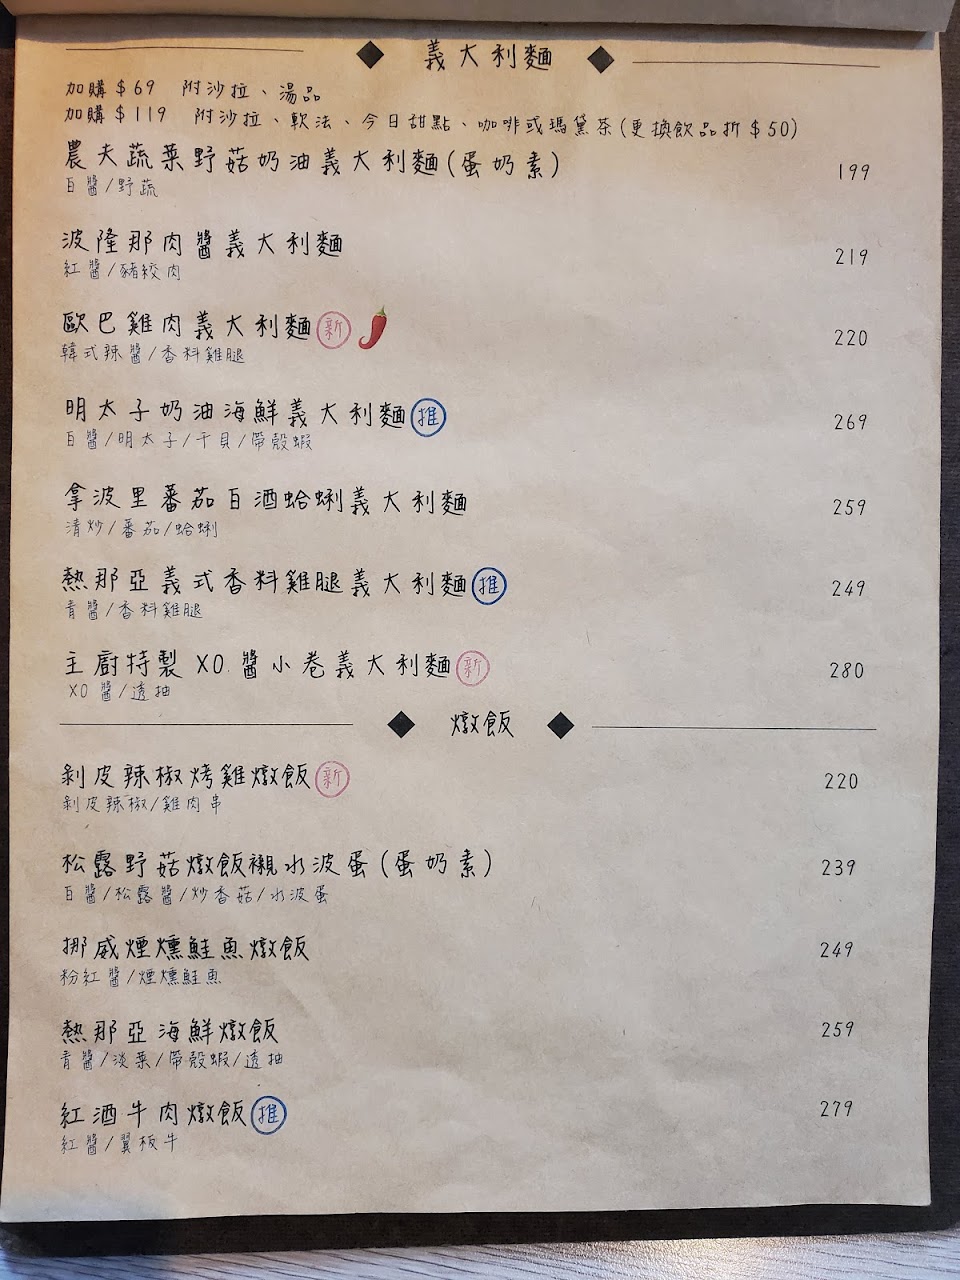 義大利麵
加購$69 附沙拉、湯品
加購$119 附沙拉、軟法、今日甜點、咖啡或瑪黛茶(更換飲品折$50)
農夫蔬菜野菇奶油義大利麵(蛋奶素) 199
白醬/野蔬
波隆那肉醬義大利麵 219
紅醬/豬絞肉
歐巴雞肉義大利麵 新 220
韓式辣醬/香料雞腿
明太子奶油海鮮義大利麵 推 269
白醬/明太子/干貝/帶殼蝦
拿波里蕃茄白酒蛤蜊義大利麵 259
清炒/蕃茄/蛤蜊
熱那亞義式香料雞腿義大利麵 推 249
青醬/香料雞腿
主廚特製 XO.醬小卷義大利麵 新 280
XO醬/透抽
燉飯
剝皮辣椒烤雞燉飯 新 220
剝皮辣椒/雞肉串
松露野菇燉飯襯水波蛋(蛋奶素) 239
白醬/松露醬/炒香菇/水波蛋
挪威煙燻鮭魚燉飯 249
粉紅醬/煙燻鮭魚
熱那亞海鮮燉飯 259
青醬/淡菜/帶殼蝦/透抽
紅酒牛肉燉飯 推 279
紅醬/翼板牛